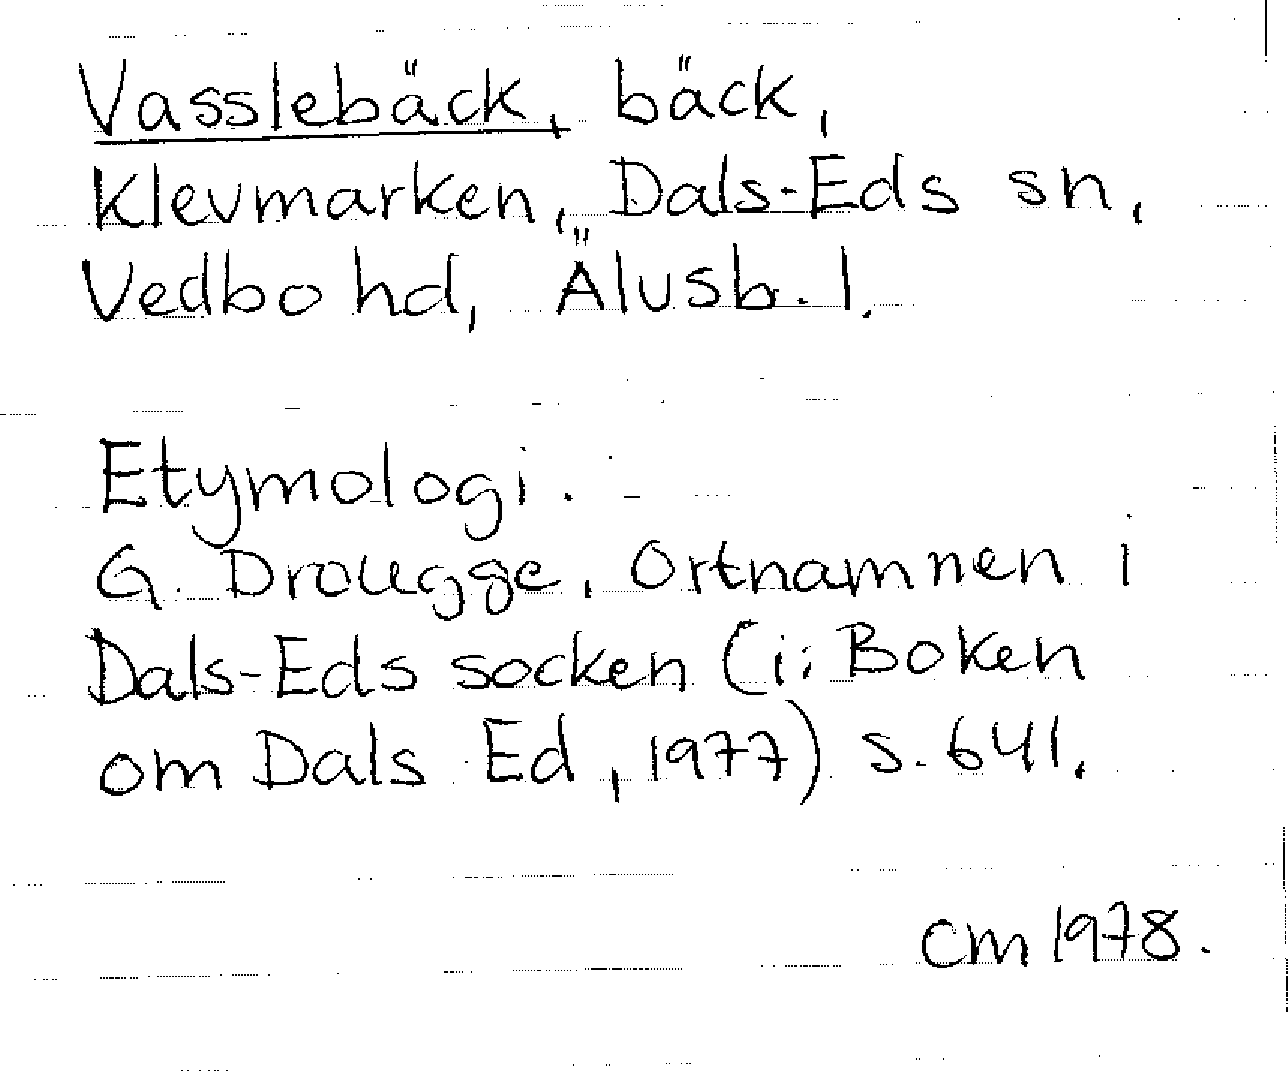 Vasslebäck, bäck,
Klevmarken, Dals-Eds sn,
Vedbo hd, Älvsb. l.
Etymologi.
G. Drougge, Ortnamnen i
Dals-Eds socken (i: Boken
om Dals Ed, 1977) s. 641.
CM 1978.